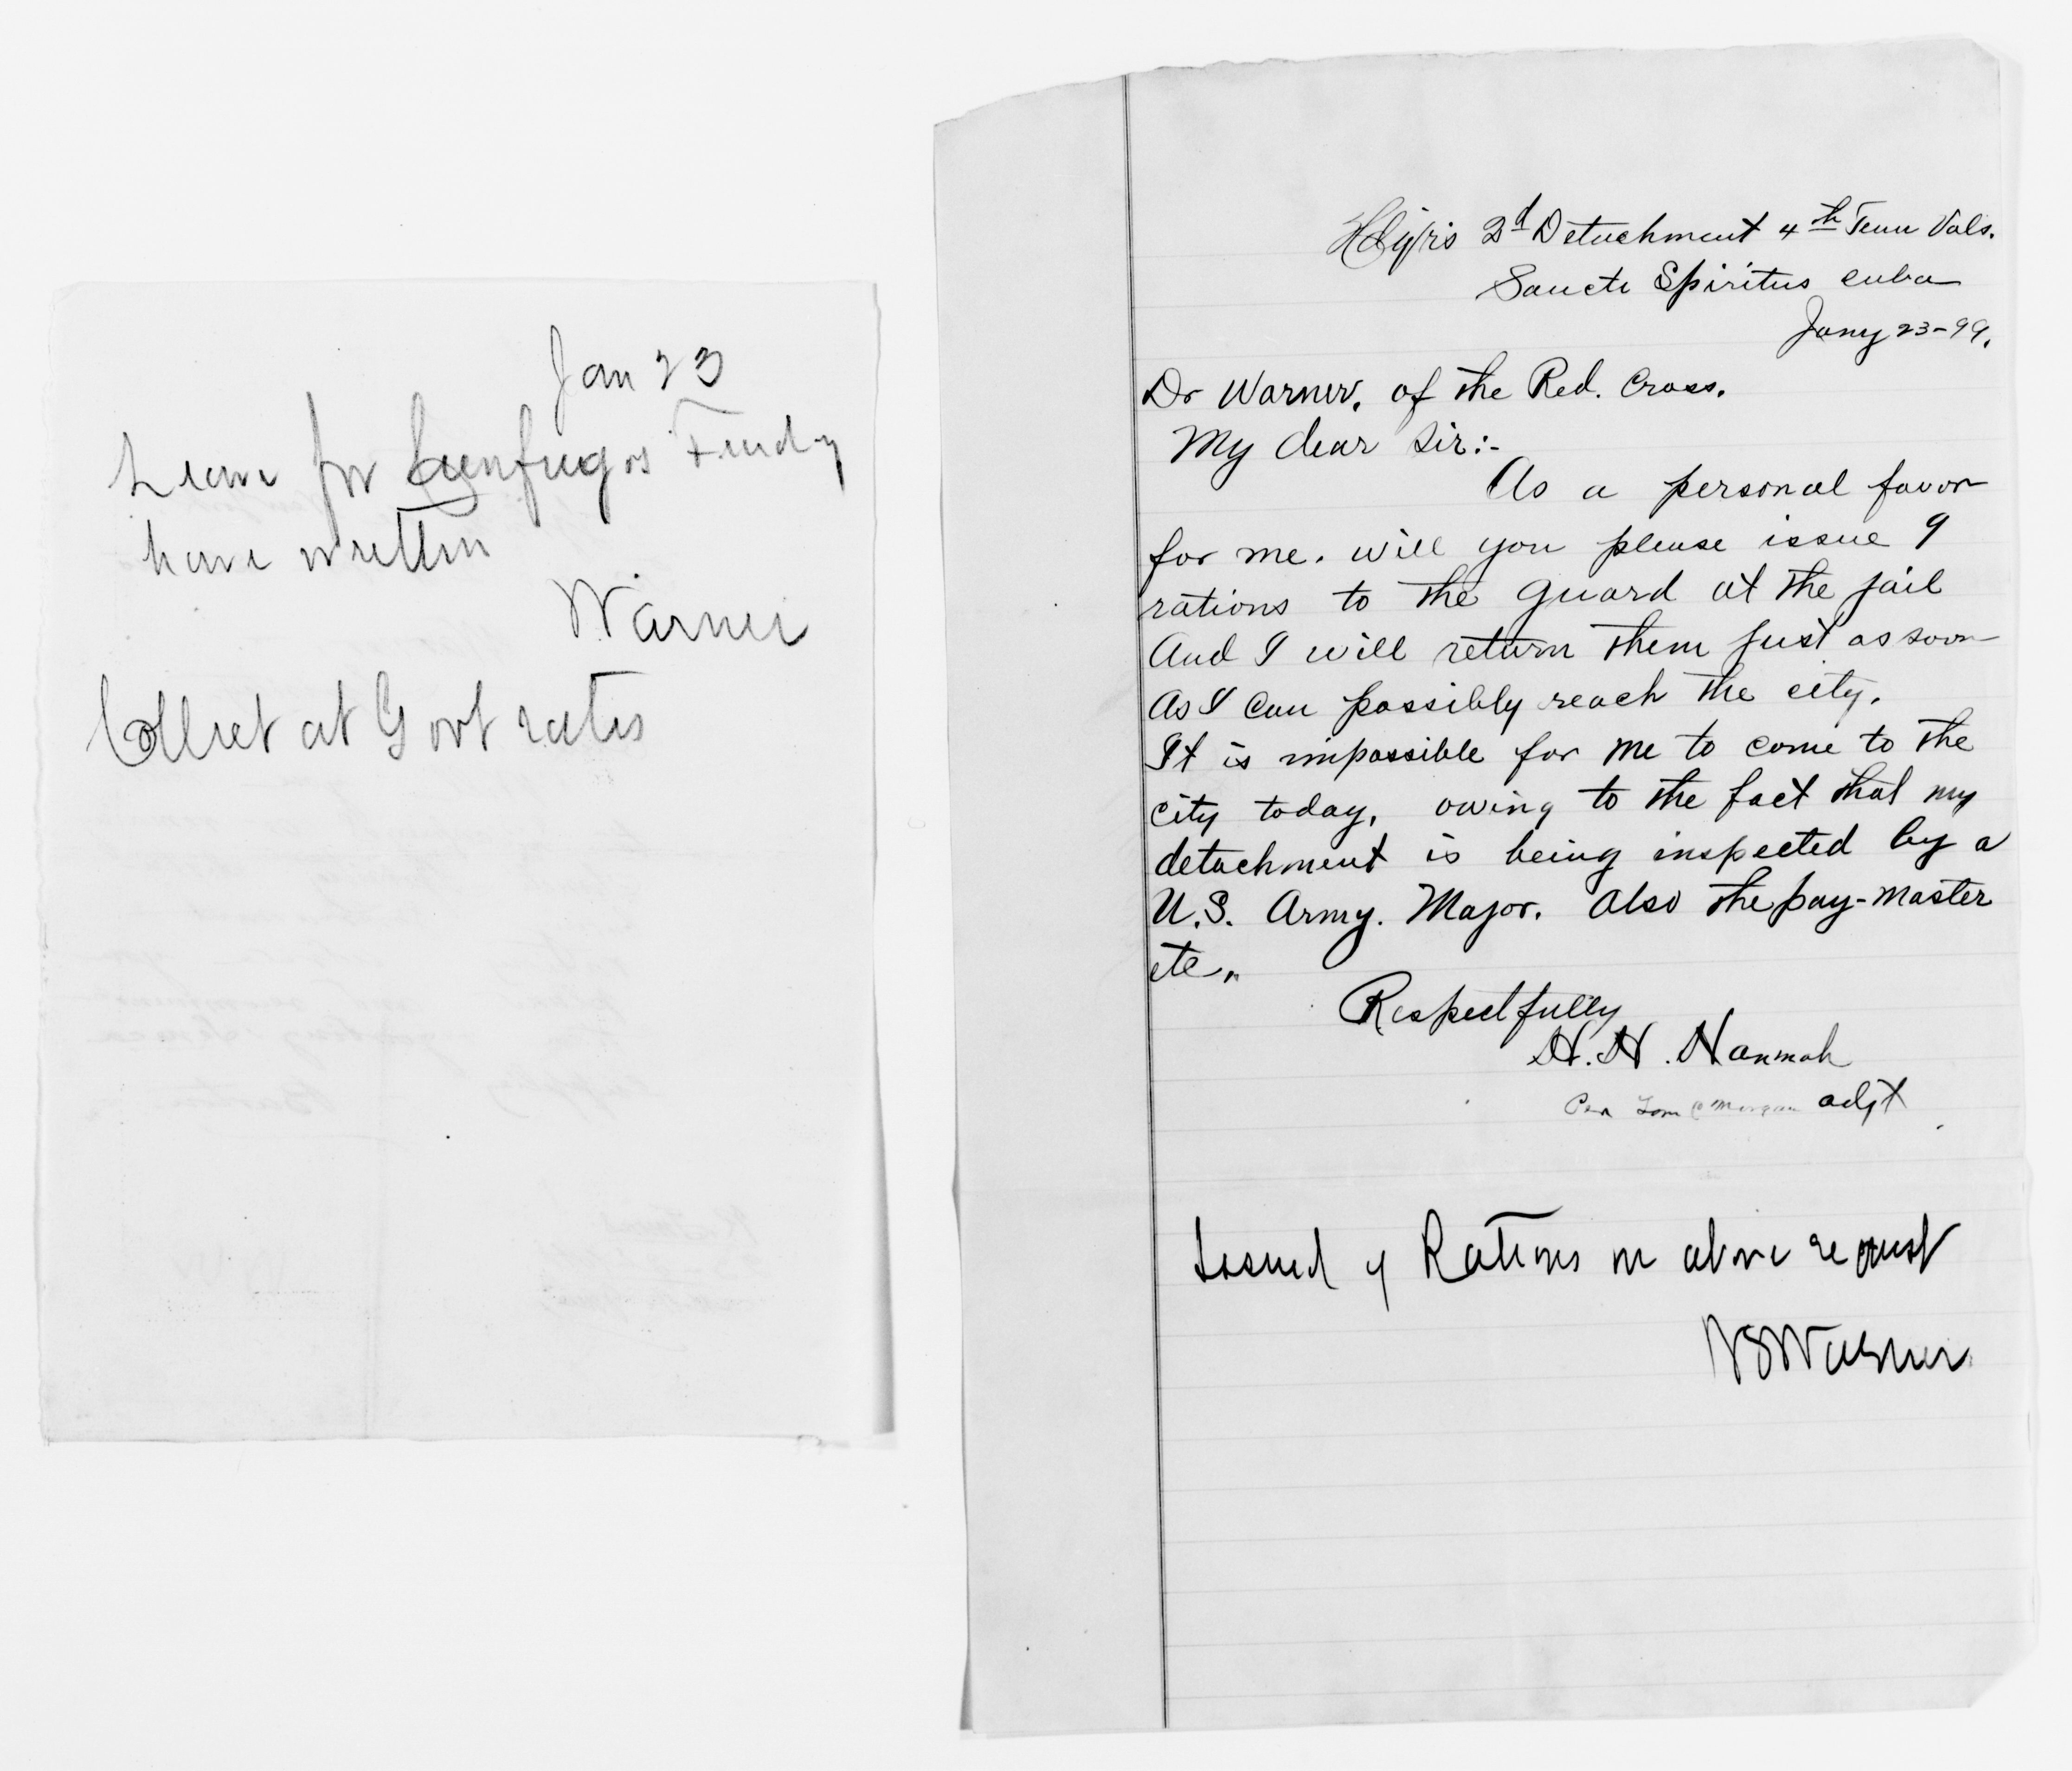 Jan 23
Leave for Cienfuegos Tuesdy
have written
Warner
Collect at Govt rates
Hdq'rs 2d Detachment 4th Tenn Vols.
Sancti Spiritus Cuba
Jany 23-99.
Dr Warner, of the Red. Cross.
My dear Sir:-
As a personal favor
for me. will you please issue 9
rations to the guard at the jail
And I will return them just as soon
As I can possibly reach the city.
It is impossible for me to come to the
city today, owing to the fact that my
detachment is being inspected by a
U.S. Army. Major. Also the pay-master
etc.
Respectfully
H. H. Hannah
Per Tom C Morgan adjt
Issued 9 Rations on above request
Warner